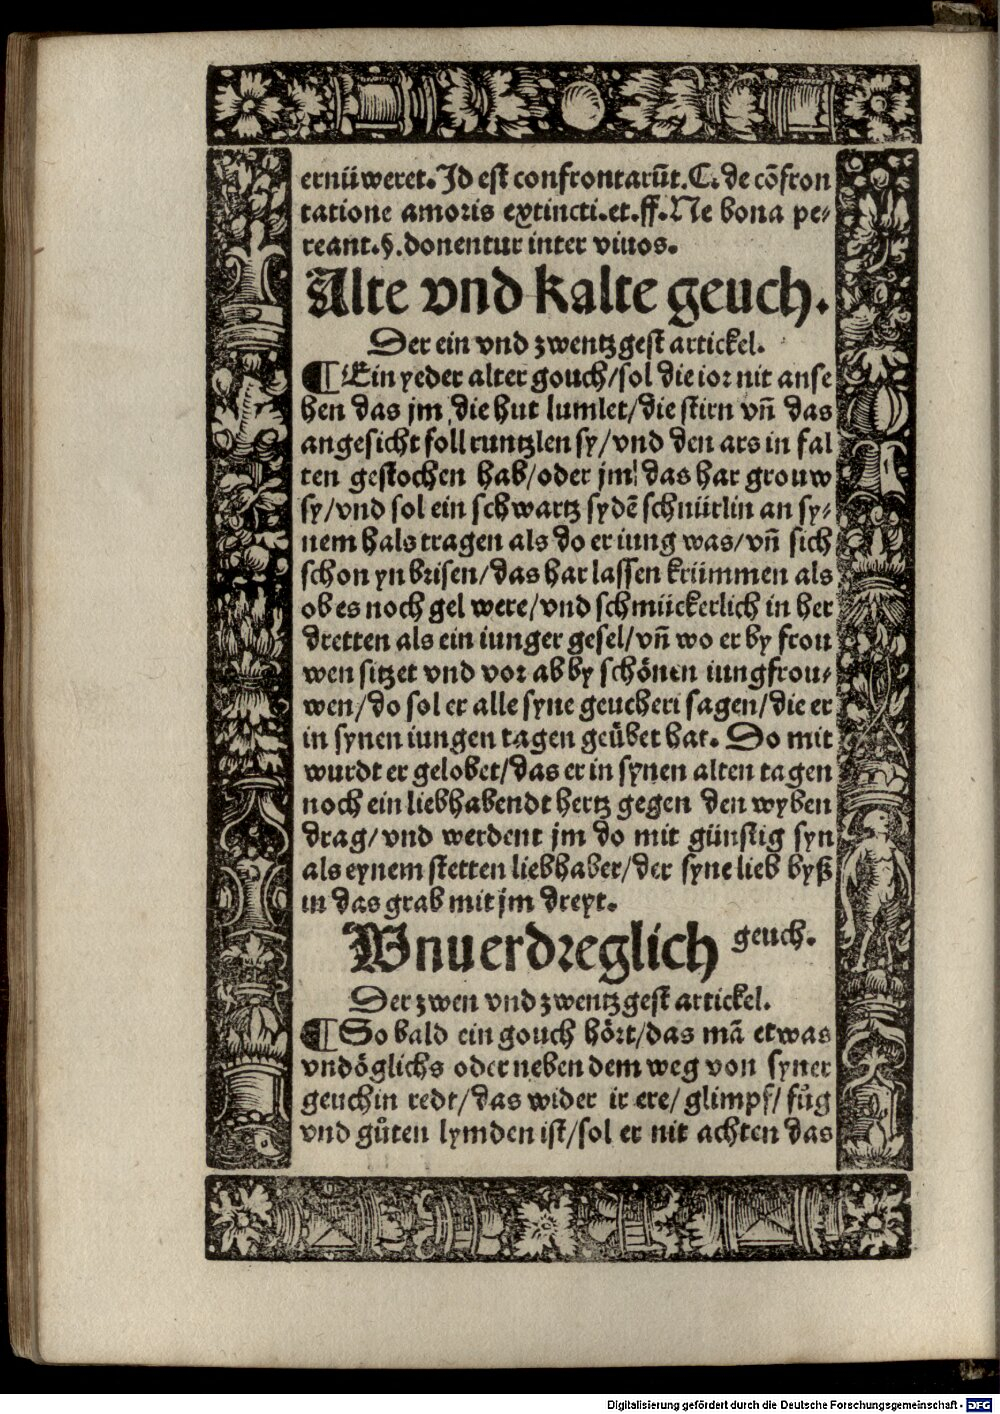 ernüweret. Id est confrontarūt. C. de cōfron
tatione amoris extincti. et. ff. Ne bona pe-
reant. §. donentur inter viuos.
Alte vnd kalte geuch.
Der ein vnd zwentzgest artickel.
¶ Ein yeder alter gouch/sol die ior nit anse
hen das jm die hut lumlet/die stirn vñ das
angesicht foll runtzlen sy/vnd den ars in fal
ten gestochen hab/oder jm das har grouw
sy/vnd sol ein schwartz sydē schnürlin an sy-
nem hals tragen als do er iung was/vñ sich
schon yn brisen/das har lassen krümmen als
ob es noch gel were/vnd schmückerlich in her
dretten als ein iunger gesel/vñ wo er by frou
wen sitzet vnd vor ab by schönen iungfrou-
wen/do sol er alle syne geucheri sagen/die er
in synen iungen tagen geübet hat. Do mit
wurdt er gelobet/das er in synen alten tagen
noch ein liebhabendt hertz gegen den wyben
drag/vnd werdent jm do mit günstig syn
als eynem stetten liebhaber/der syne lieb byß
in das grab mit jm dreyt.
Vnuerdreglich geuch.
Der zwen vnd zwentzgest artickel.
¶ So bald ein gouch hört/das mā etwas
vndöglichs oder neben dem weg von syner
geuchin redt/das wider ir ere/glimpf/fůg
vnd gůten lymden ist/sol er nit achten das
Digitalisierung gefördert durch die Deutsche Forschungsgemeinschaft - DFG